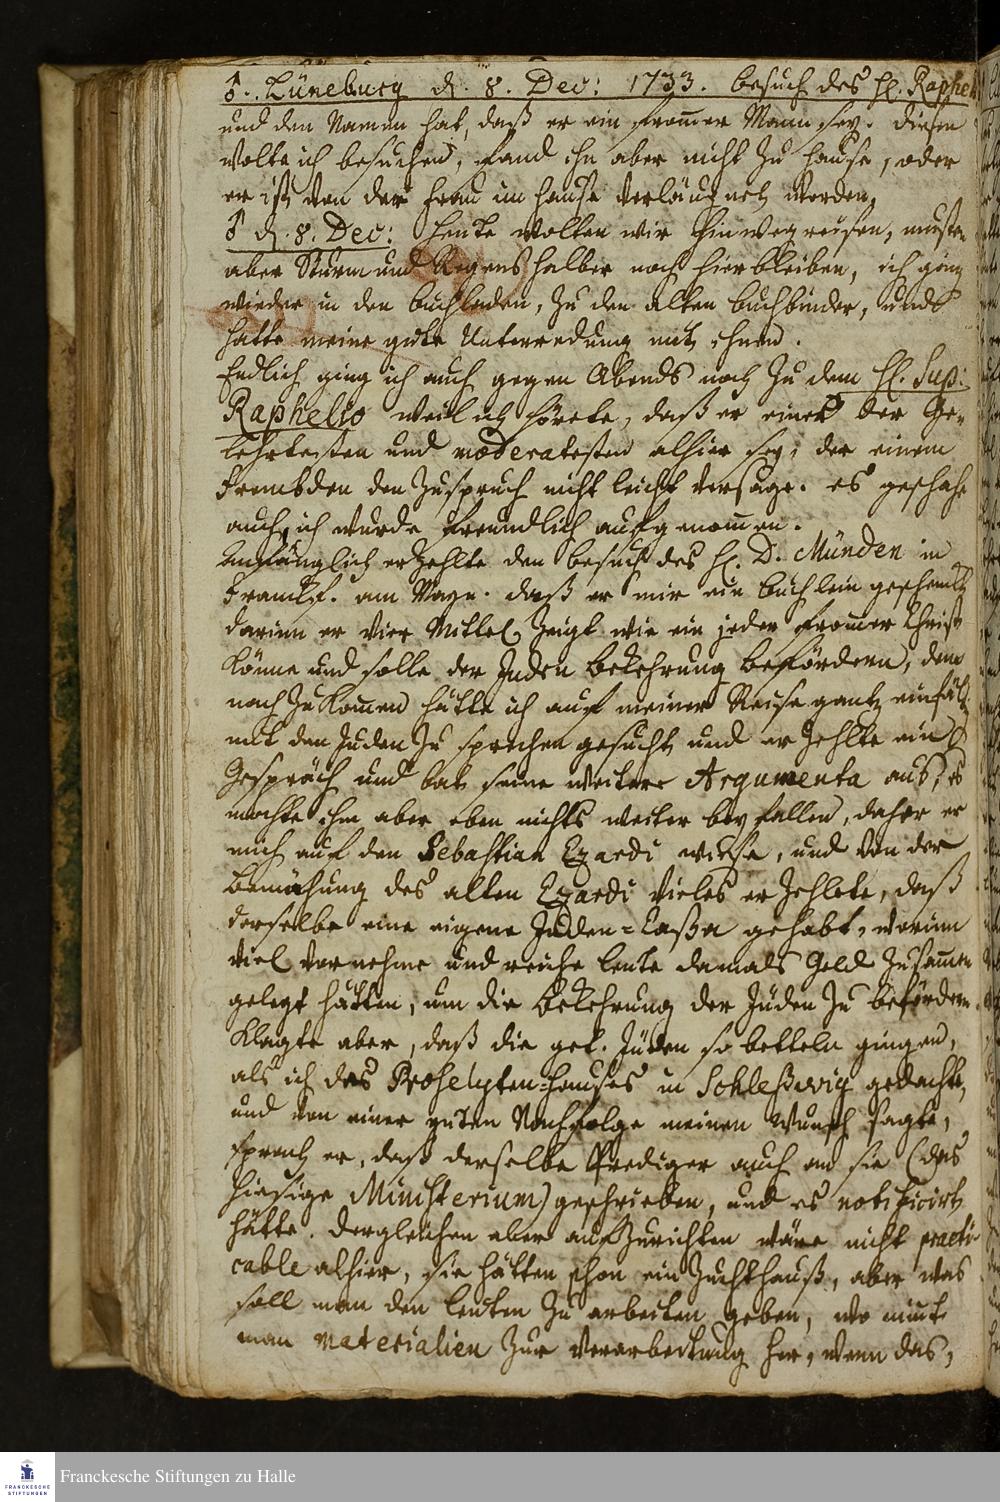 ♂. Lüneburg d. 8. Dec: 1733. Besuch des H. Raphel
und den Namen hat, daß er ein from̄er Mann sey. diesen
wolte ich besuchen, fand ihn aber nicht zu Hause, oder
er ist von der Frau im Hause verläugnet worden.
♂ d. 8. Dec: Heute wolten wir hinweg reisen, musten
aber Sturm und Regens halber noch hier bleiben, ich ging
wieder in den Buchladen, zu den alten Buchbinder, und
hatte meine gute Unterredung mit ihnen.
Endlich ging ich auch gegen Abends noch zu dem H. Sup:
Raphelio weil ich hörete, daß er einer der Ge-
lehrtesten und moderatesten alhier sey, der einem
Frembden den Zuspruch nicht leicht versage. es geschahe
auch, ich wurde freundlich aufgenom̄en.
Anfänglich erzehlte den Besuch des H. D. Münden in
Franckf. am Mayn. daß er mir ein Büchlein geschenckt
darinn er vier Mittel zeigt wie ein jeder from̄er Christ
könne und solle der Juden Bekehrung befördern, dem
nach zu kom̄en hätte ich auf meiner Reise gantz einfält
mit den Juden zu sprechen gesucht und erzehlte ein
Gespräch und bat seine weitere Argumenta aus, es
mochte ihm aber eben nichts weiter beyfallen, daher er
mich auf den Sebastian Ezardi wiese, und von der
Bemühung des alten Ezardi vieles erzehlete, daß
derselbe eine eigene Juden-Cassa gehabt, worinn
viel vornehme und reiche Leute damals Geld zusam̄en
gelegt hätten, um die Bekehrung der Jüden zu befördern
klagte aber, daß die get. Jüden so betteln gingen,
als ich des Proselyten-Hauses in Schleßwig gedachte,
und von einer guten Nachfolge meinen Wunsch sagte,
sprach er, daß derselbe Prediger auch an sie (das
hiesige Ministerium) geschrieben, und es notificirt
hätte. dergleichen aber aufzurichten wäre nicht practi-
cable alhier, sie hätten schon ein Zuchthauß, aber was
soll man den Leuten zu arbeiten geben, wo nim̄t
man materialien zur Verarbeitung her, wenn das,
FRANCKESCHE
STIFTUNGEN
Franckesche Stiftungen zu Halle